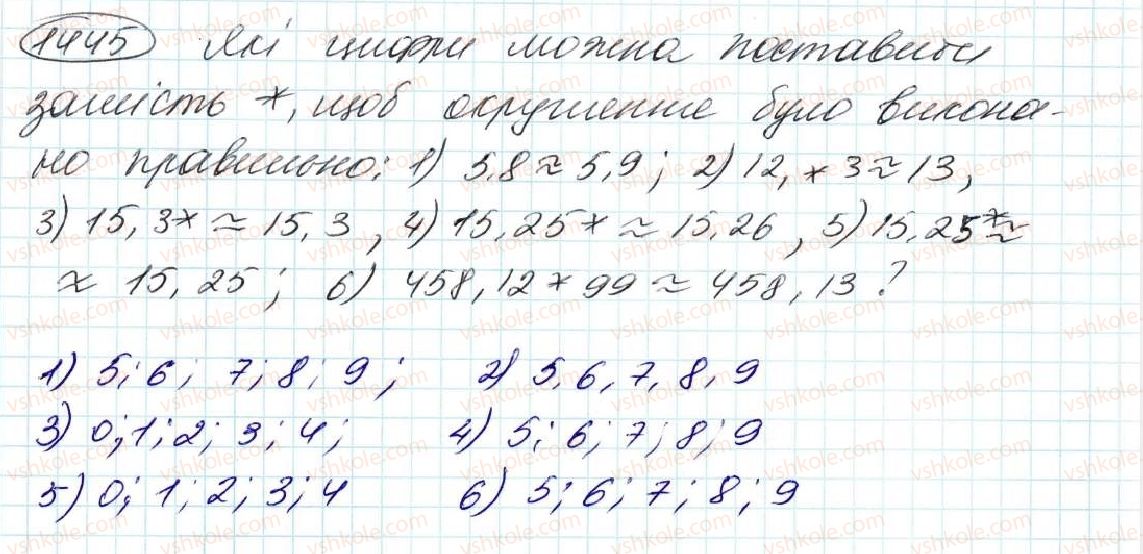 1445 Які цифри можна поставити
замість *, щоб округлення було викона-
но правильно: 1) 5,8 ≈ 5,9; 2) 12,*3 ≈ 13,
3) 15,3* ≈ 15,3, 4) 15,25* ≈ 15,26, 5) 15,25* ≈
≈ 15,25; 6) 458,12*99 ≈ 458,13?
1) 5; 6; 7; 8; 9; 2) 5, 6, 7, 8, 9
3) 0; 1; 2; 3; 4; 4) 5; 6; 7; 8; 9
5) 0; 1; 2; 3; 4 6) 5; 6; 7; 8; 9
vshkole.com